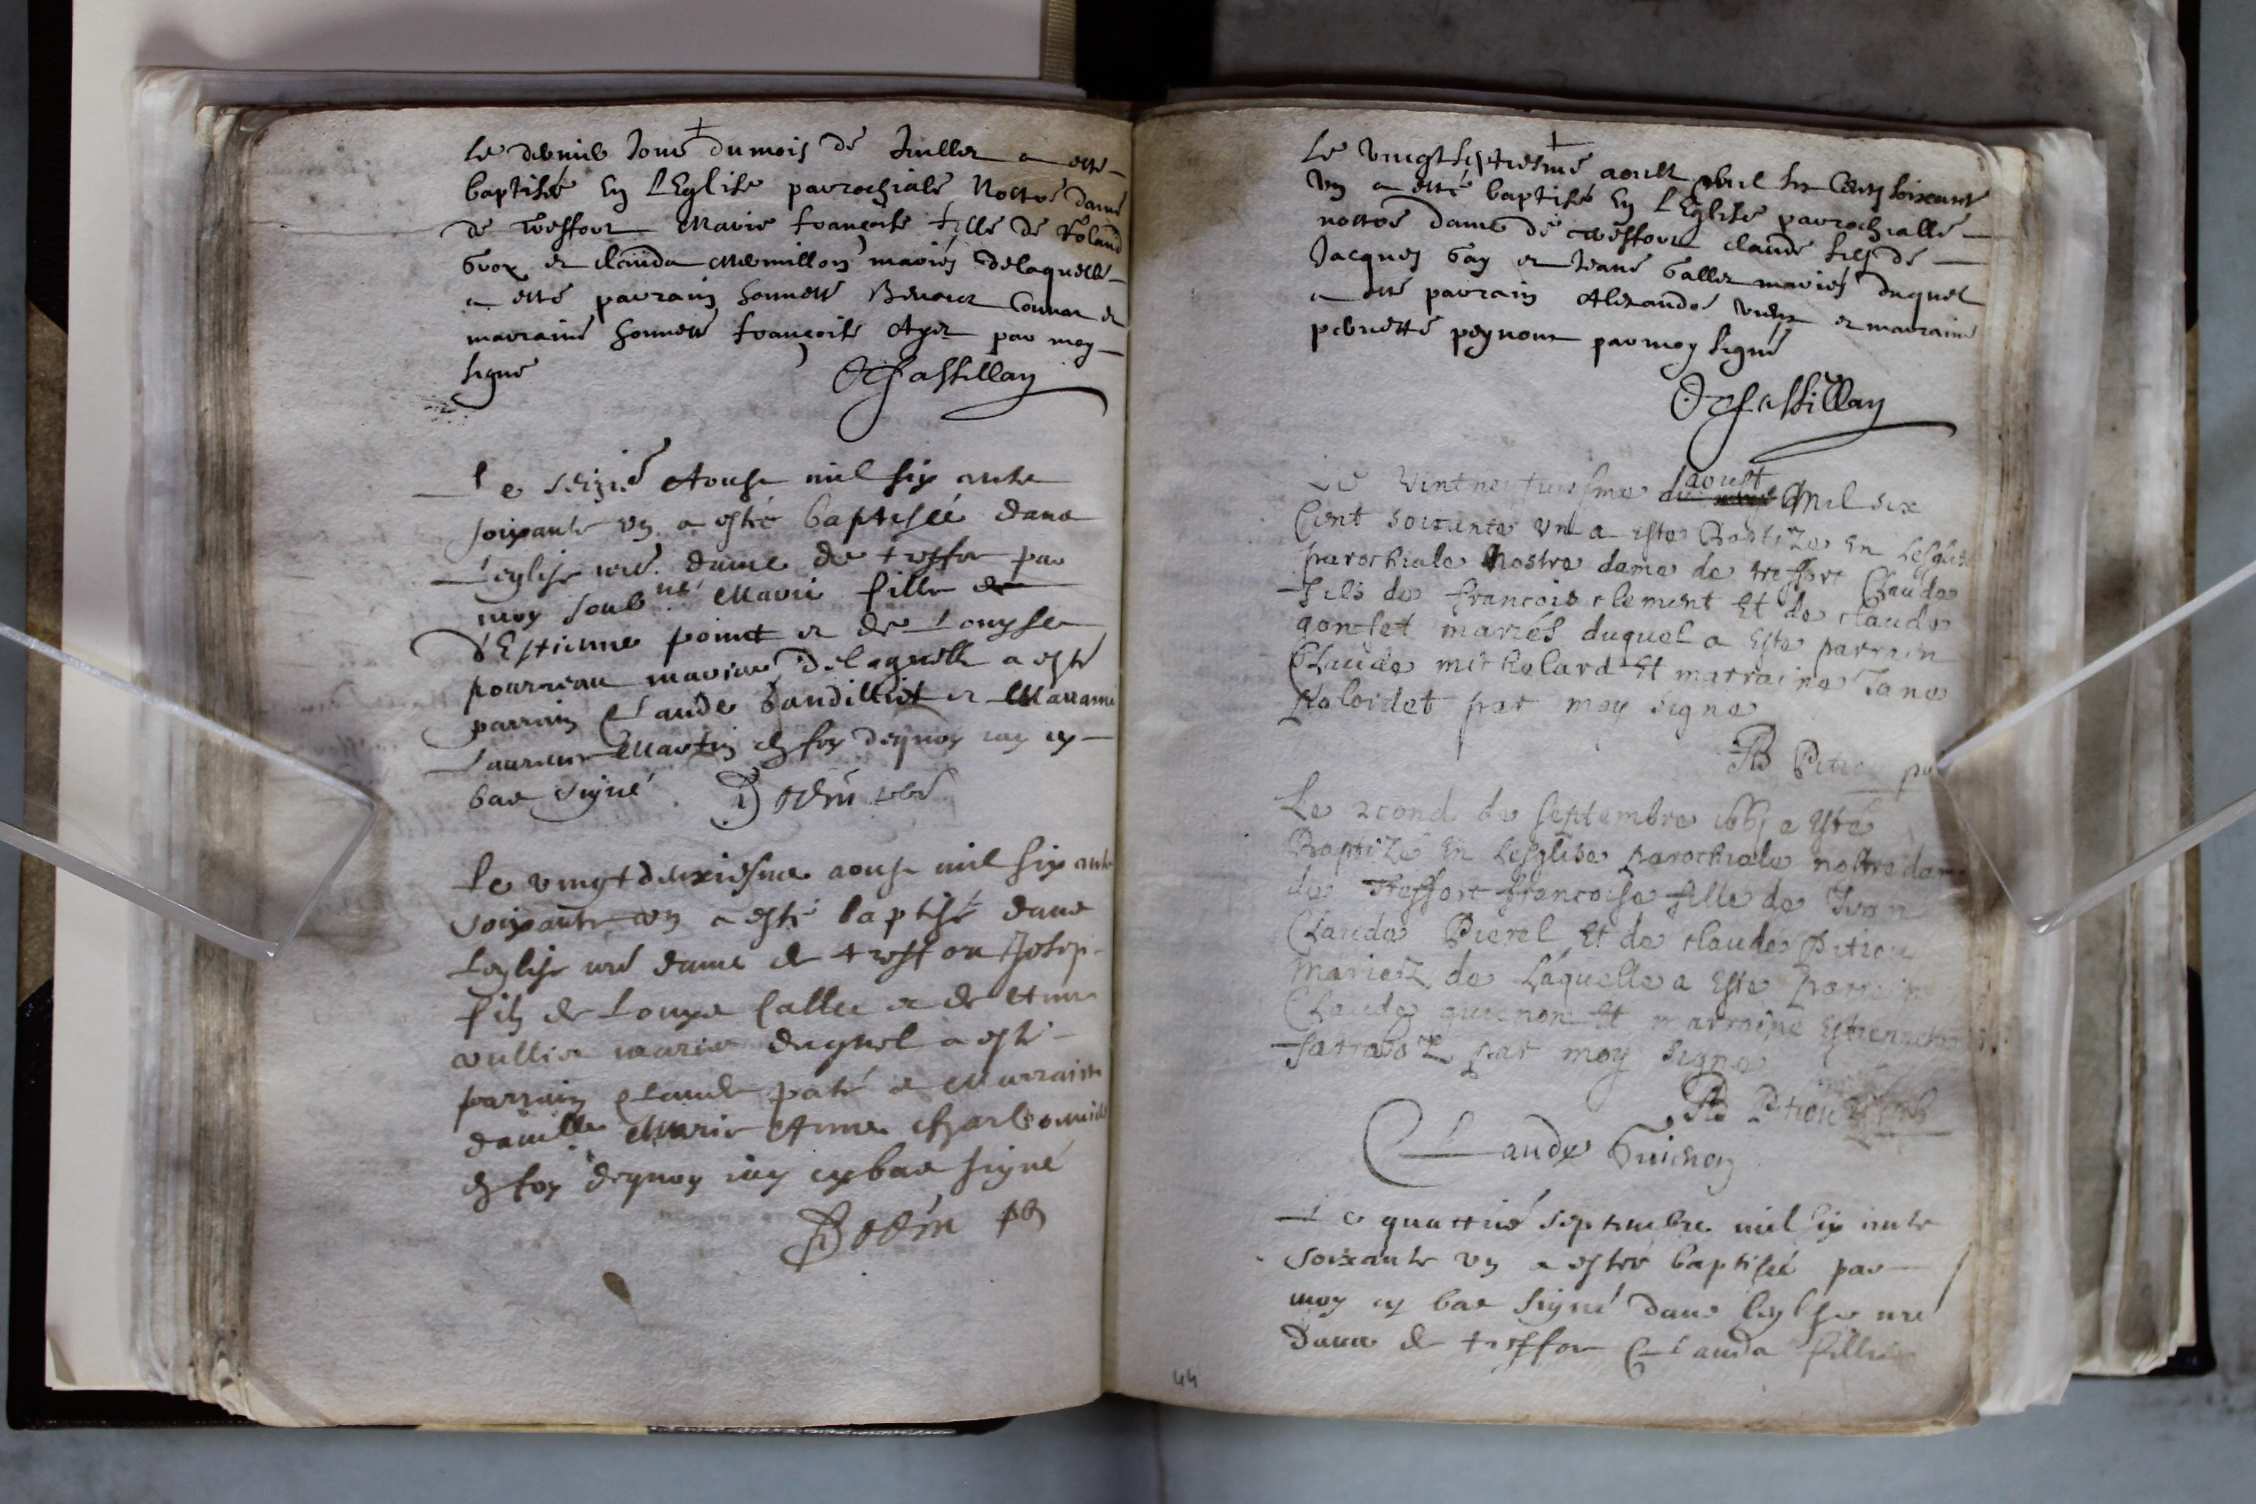 Le dernier Jour du mois de Juillet a esté
baptisée en L'Eglise parrochiale Nostre dame
de treffort Marie françoise fille de Roland
Grox et clauda Mermillon mariés delaquelle
a esté parrain honneste Benoict Convat et
marraine honneste françoise Ager par moy
signé
Chassillan
Le seizie Aoust mil six cents
soixante un a esté baptisée dans
L'eglise nre dame de treffor par
moy soubne Marie fille de
d'Estienne point et de Louyse
pourreau mariez delaquelle a esté
parrain Claude Bandilliet et Marraine
Laurence Martin en foy dequoy iay cy
bas signé
Le vingt deuxiesme aoust mil six cents
soixante un a esté baptisé dans
Leglise nre dame de treffor Josep
filz de Louys Callee et de Anne
vullier mariez duquel a esté
parrain Claude paté et Marraine
damlle Marie Anne
en foy dequoy iay cy bas signé
Le vingt septiesme aoust mil six Cents soixante
un a esté baptisé en L'Eglise parrochialle
nostre dame de treffort claude fils de
Jacques Gay et Jeane Gallet mariés duquel
a esté parrain Alexandre vieux et marraine
pernette peynout par moy signé
Chassillan
Le vintneufviesme d'aoust Mil six
Cent soixante un a este Baptize en Leglise
parochiale Nostre dame de treffort Claude
fils de francois clement Et de claude
gonset mariés duquel a Este parrain
Claude michelard Et marraine Jane
par moy signe
Le 2cond de septembre 1661 a Esté
Baptizé en Lesglise parochiale nostre dame
de Treffort francoise fille de Jean
Claude Pierel Et de claude Pitiou
mariez de Laquelle a Este parrain
Claude guienon Et marraine Estiennette
par moy signe
Claude Guichon
Le quattrie septembre mil six cents
soixante un a estée baptisée par
moy cy bas signé dans leglise nre
Dame de treffor Clauda fille
44